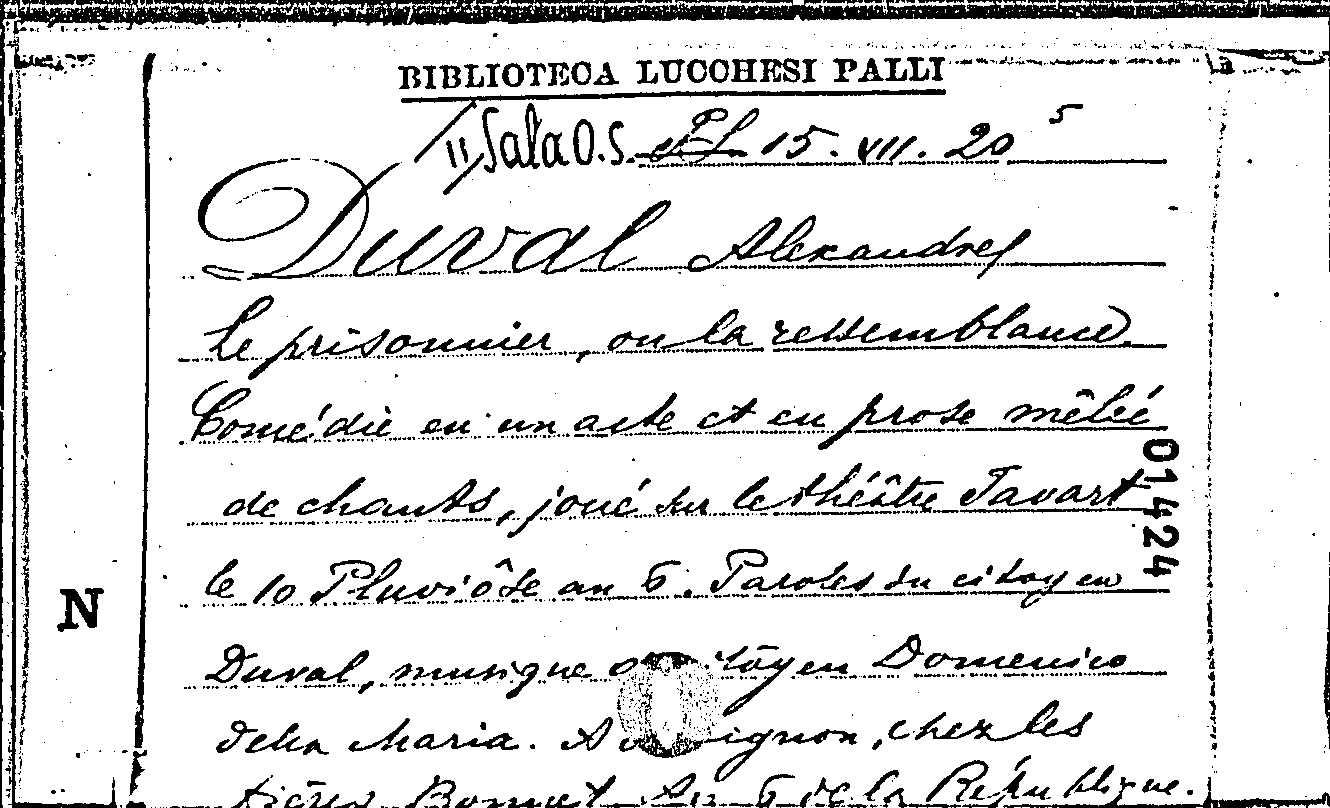 BIBLIOTECA LUCCHESI PALLI
II Sala O.S. PL 15. VII. 20 5
Duval Alexandre
Le prisonnier, ou la ressemblance.
Comédie en un acte et en prose mêlée
de chants, joué sur le théâtre Favart
le 10 Pluviôse an 6. Paroles du citoyen
Duval, musique citoyen Domenico
della Maria. A Avignon, chez les
frères Bonnet An 6 de la République.
01424
N